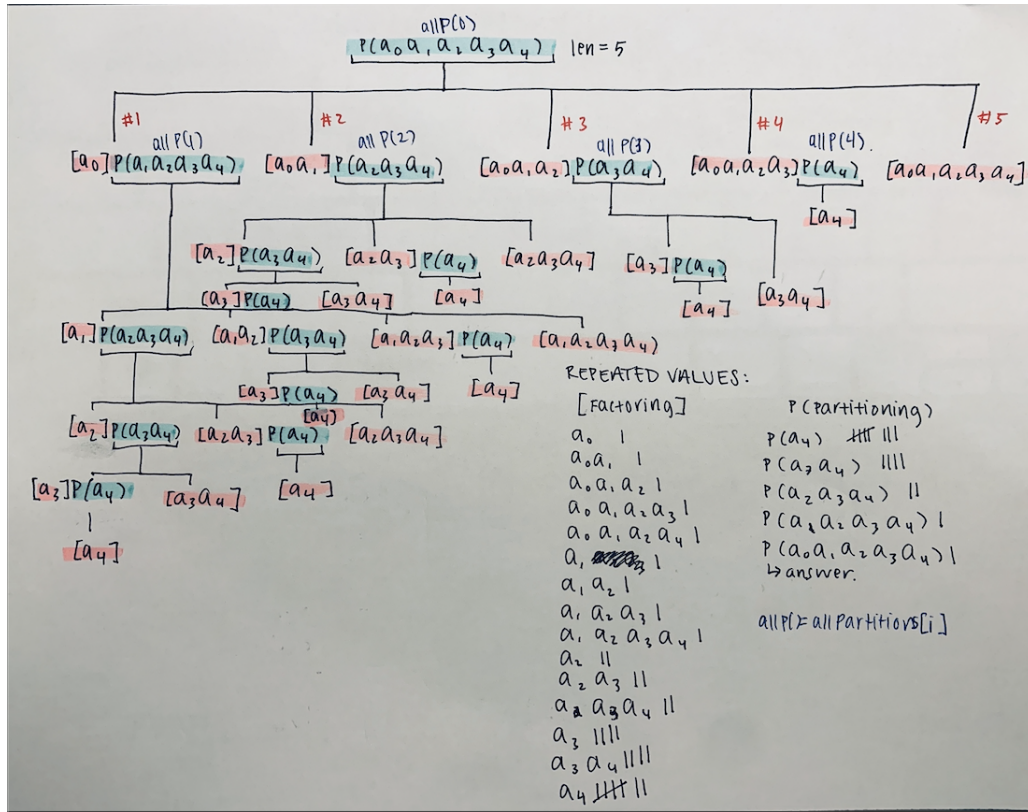 allP(0)
P(a₀a₁a₂a₃a₄) len = 5
#1 #2 #3 #4 #5
allP(1) allP(2) allP(3) allP(4).
[a₀]P(a₁a₂a₃a₄) [a₀a₁]P(a₂a₃a₄) [a₀a₁a₂]P(a₃a₄) [a₀a₁a₂a₃]P(a₄) [a₀a₁a₂a₃a₄]
[a₄]
[a₂]P(a₃a₄) [a₂a₃]P(a₄) [a₂a₃a₄] [a₃]P(a₄)
[a₃]P(a₄) [a₃a₄] [a₄] [a₄] [a₃a₄]
[a₁]P(a₂a₃a₄) [a₁a₂]P(a₃a₄) [a₁a₂a₃]P(a₄) [a₁a₂a₃a₄]
[a₃]P(a₄) [a₃a₄] [a₄]
[a₄]
[a₂]P(a₃a₄) [a₂a₃]P(a₄) [a₂a₃a₄]
[a₃]P(a₄) [a₃a₄] [a₄]
[a₄]
REPEATED VALUES:
[Factoring]
a₀ |
a₀a₁ |
a₀a₁a₂ |
a₀a₁a₂a₃ |
a₀a₁a₂a₄ |
a₁ |
a₁a₂ |
a₁a₂a₃ |
a₁a₂a₃a₄ |
a₂ ||
a₂a₃ ||
a₂a₃a₄ ||
a₃ ||||
a₃a₄ ||||
a₄ 卌 ||
P(Partitioning)
P(a₄) 卌 |||
P(a₃a₄) ||||
P(a₂a₃a₄) ||
P(a₁a₂a₃a₄) |
P(a₀a₁a₂a₃a₄) |
↳ answer.
allP()= allPartitions[i]